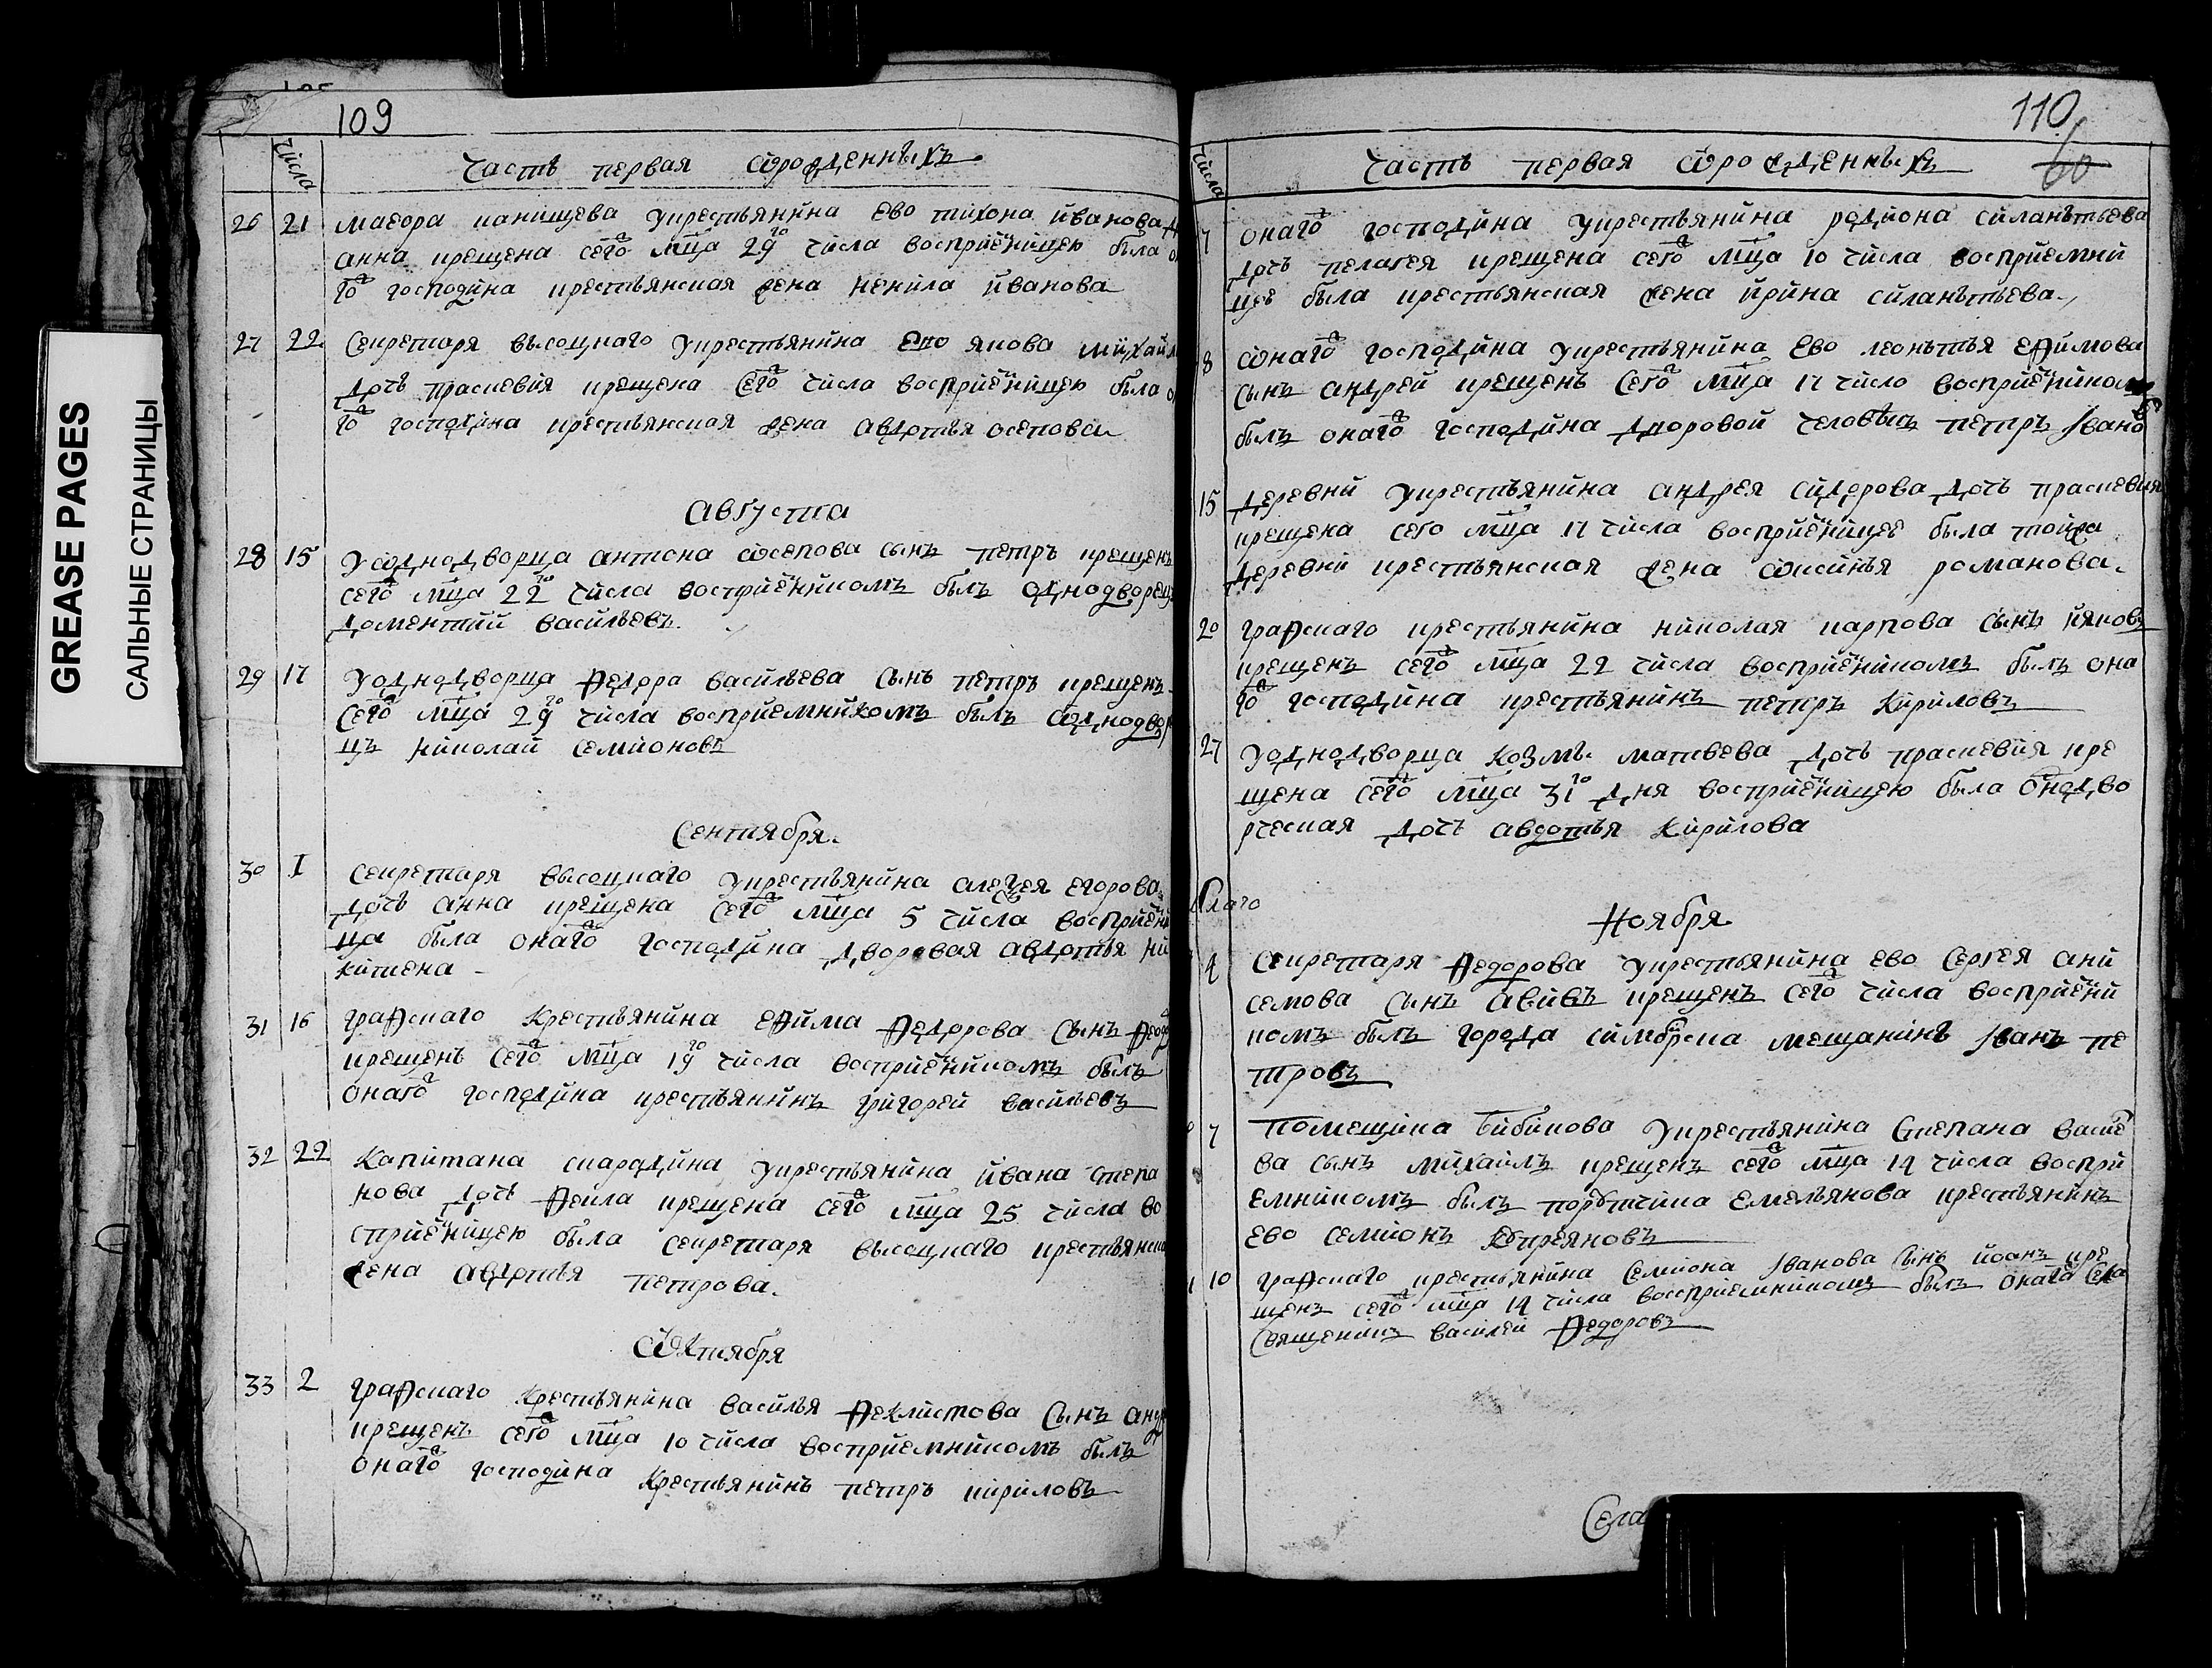 GREASE PAGES
САЛЬНЫЕ СТРАНИЦЫ
109
числа
Часть первая ѿрожденныхъ
26 21 маеора панищева укрестьянина ево тихона иванова
анна крещена сего мца 29го числа восприемницею была
го господина крестьянская жена ненила иванова
27 22 Секретаря высоцкаго укрестьянина ево якова михайл
дочь праскевия крещена сего числа восприемницею была
го господина крестьянская жена авдотья осепова
августа
28 15 Уѡднодворца антона ѡсепова сынъ петръ крещенъ
сего мца 22го числа восприемникомъ былъ однодворец
доментий васильевъ
29 17 Уоднодворца федора васильева сынъ петръ крещенъ
сего мца 29го числа восприемникомъ былъ ѡднодвор
цъ николай семионовъ
Сентября
30 1 секретаря высоцкаго укрестьянина алексея егорова
дочь анна крещена сего мца 5 числа восприемни
ца была онаго господина дворовая авдотья ни
китиена
31 16 графскаго крестьянина ефима федорова сынъ
крещенъ сего мца 19го числа восприемникомъ былъ
онаго господина крестьянинъ григорей васильевъ
32 22 капитана скарядина укрестьянина ивана степа
нова дочь фекла крещена сего мца 25 числа во
сприемницею была секретаря высоцкаго крестьянска
жена авдотья петрова
Ѡктября
33 2 графскаго крестьянина василья феклистова сынъ
крещенъ сего мца 10 числа восприемникомъ былъ
онаго господина крестьянинъ петръ кириловъ
110
60
числа
Часть первая ѿрожденныхъ
7 онаго господина укрестьянина родиона силантьева
дочь пелагея крещена сего мца 10 числа восприемни
цею была крестьянская жена ирина силантьева
8 ѡнаго господина укрестьянина ево леонтья ефимова
сынъ андрей крещенъ сего мца 17 число восприемником
былъ онаго господина дворовой человѣкъ петръ Iвано
15 деревни укрестьянина андрея сидорова дочь праскевия
крещена сего мца 17 числа восприемницею была тойже
деревни крестьянская жена ѡксинья романова
20 графскаго крестьянина николая карпова сынъ иаковъ
крещенъ сего мца 22 числа восприемникомъ былъ она
го господина крестьянинъ петръ кириловъ
27 Уоднодворца козмы матвеева дочь праскевия кре
щена сего мца 31го дня восприемницею была однодво
рческая дочь авдотья кирилова
Ноября
4 секретаря федорова укрестьянина ево сергея ани
семова сынъ авивъ крещенъ сего числа восприемни
комъ былъ города симбрска мещанинъ Iванъ пе
тровъ
7 помещика бибикова укрестьянина степана василе
ва сынъ михаилъ крещенъ сего мца 14 числа воспри
емникомъ былъ порутчика емельянова крестьянинъ
ево семионъ куприяновъ
10 графскаго крестьянина семиона Iванова сынъ иоанъ кре
щенъ сего мца 14 числа восприемникомъ былъ онаго села
священникъ василей федоровъ
Села